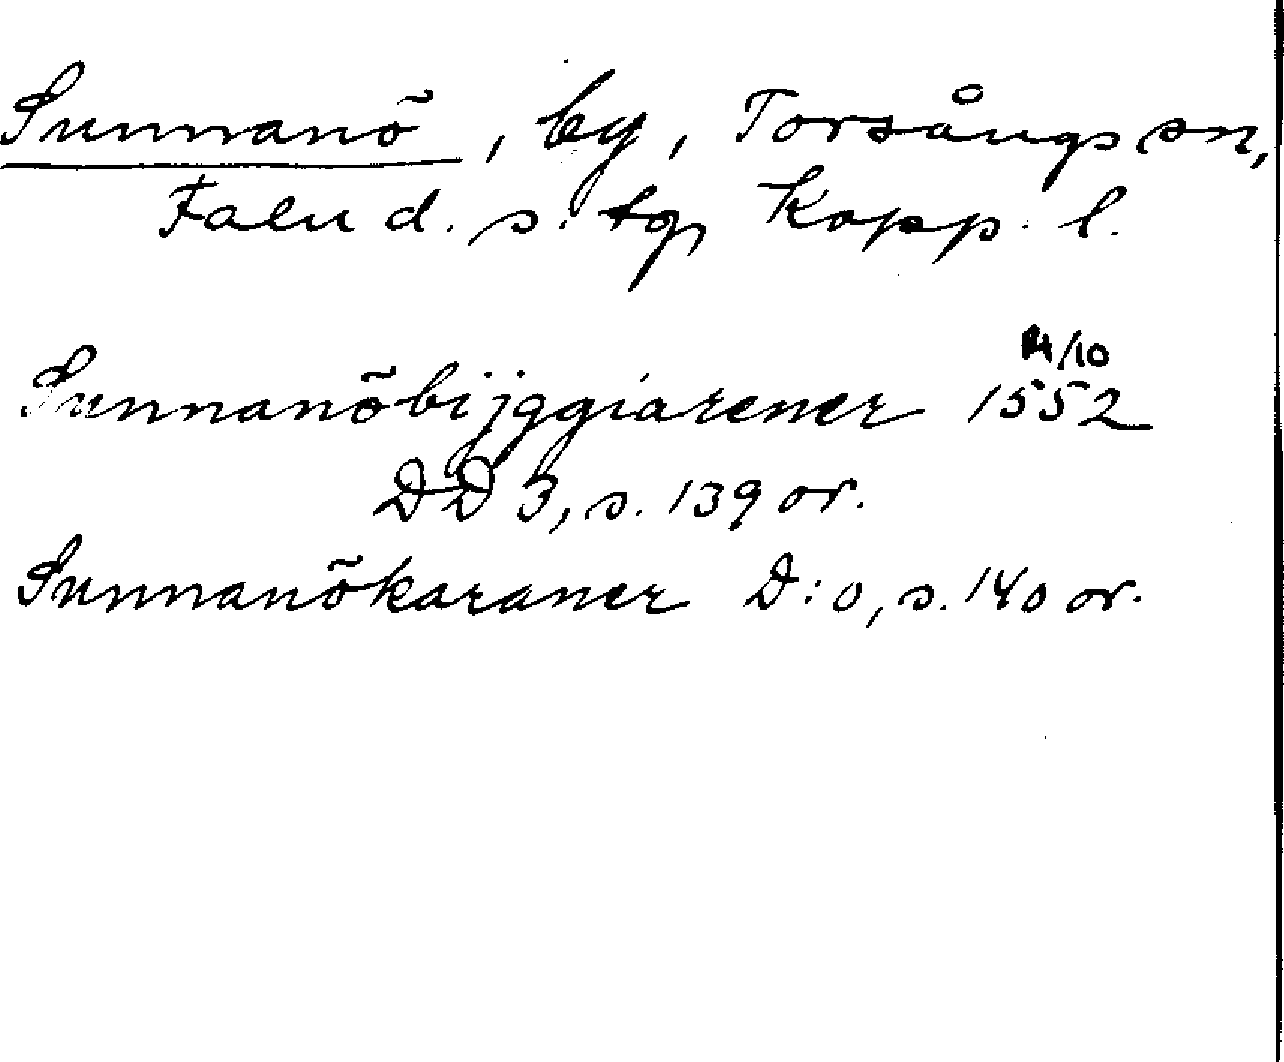 Sunnanö, by, Torsångs sn,
Falu d. s. tg, Kopp. l.
14/10
Sunnanöbijggiarener 1552
DD 3, s. 139 or.
Sunnanökaraner D:o, s. 140 or.